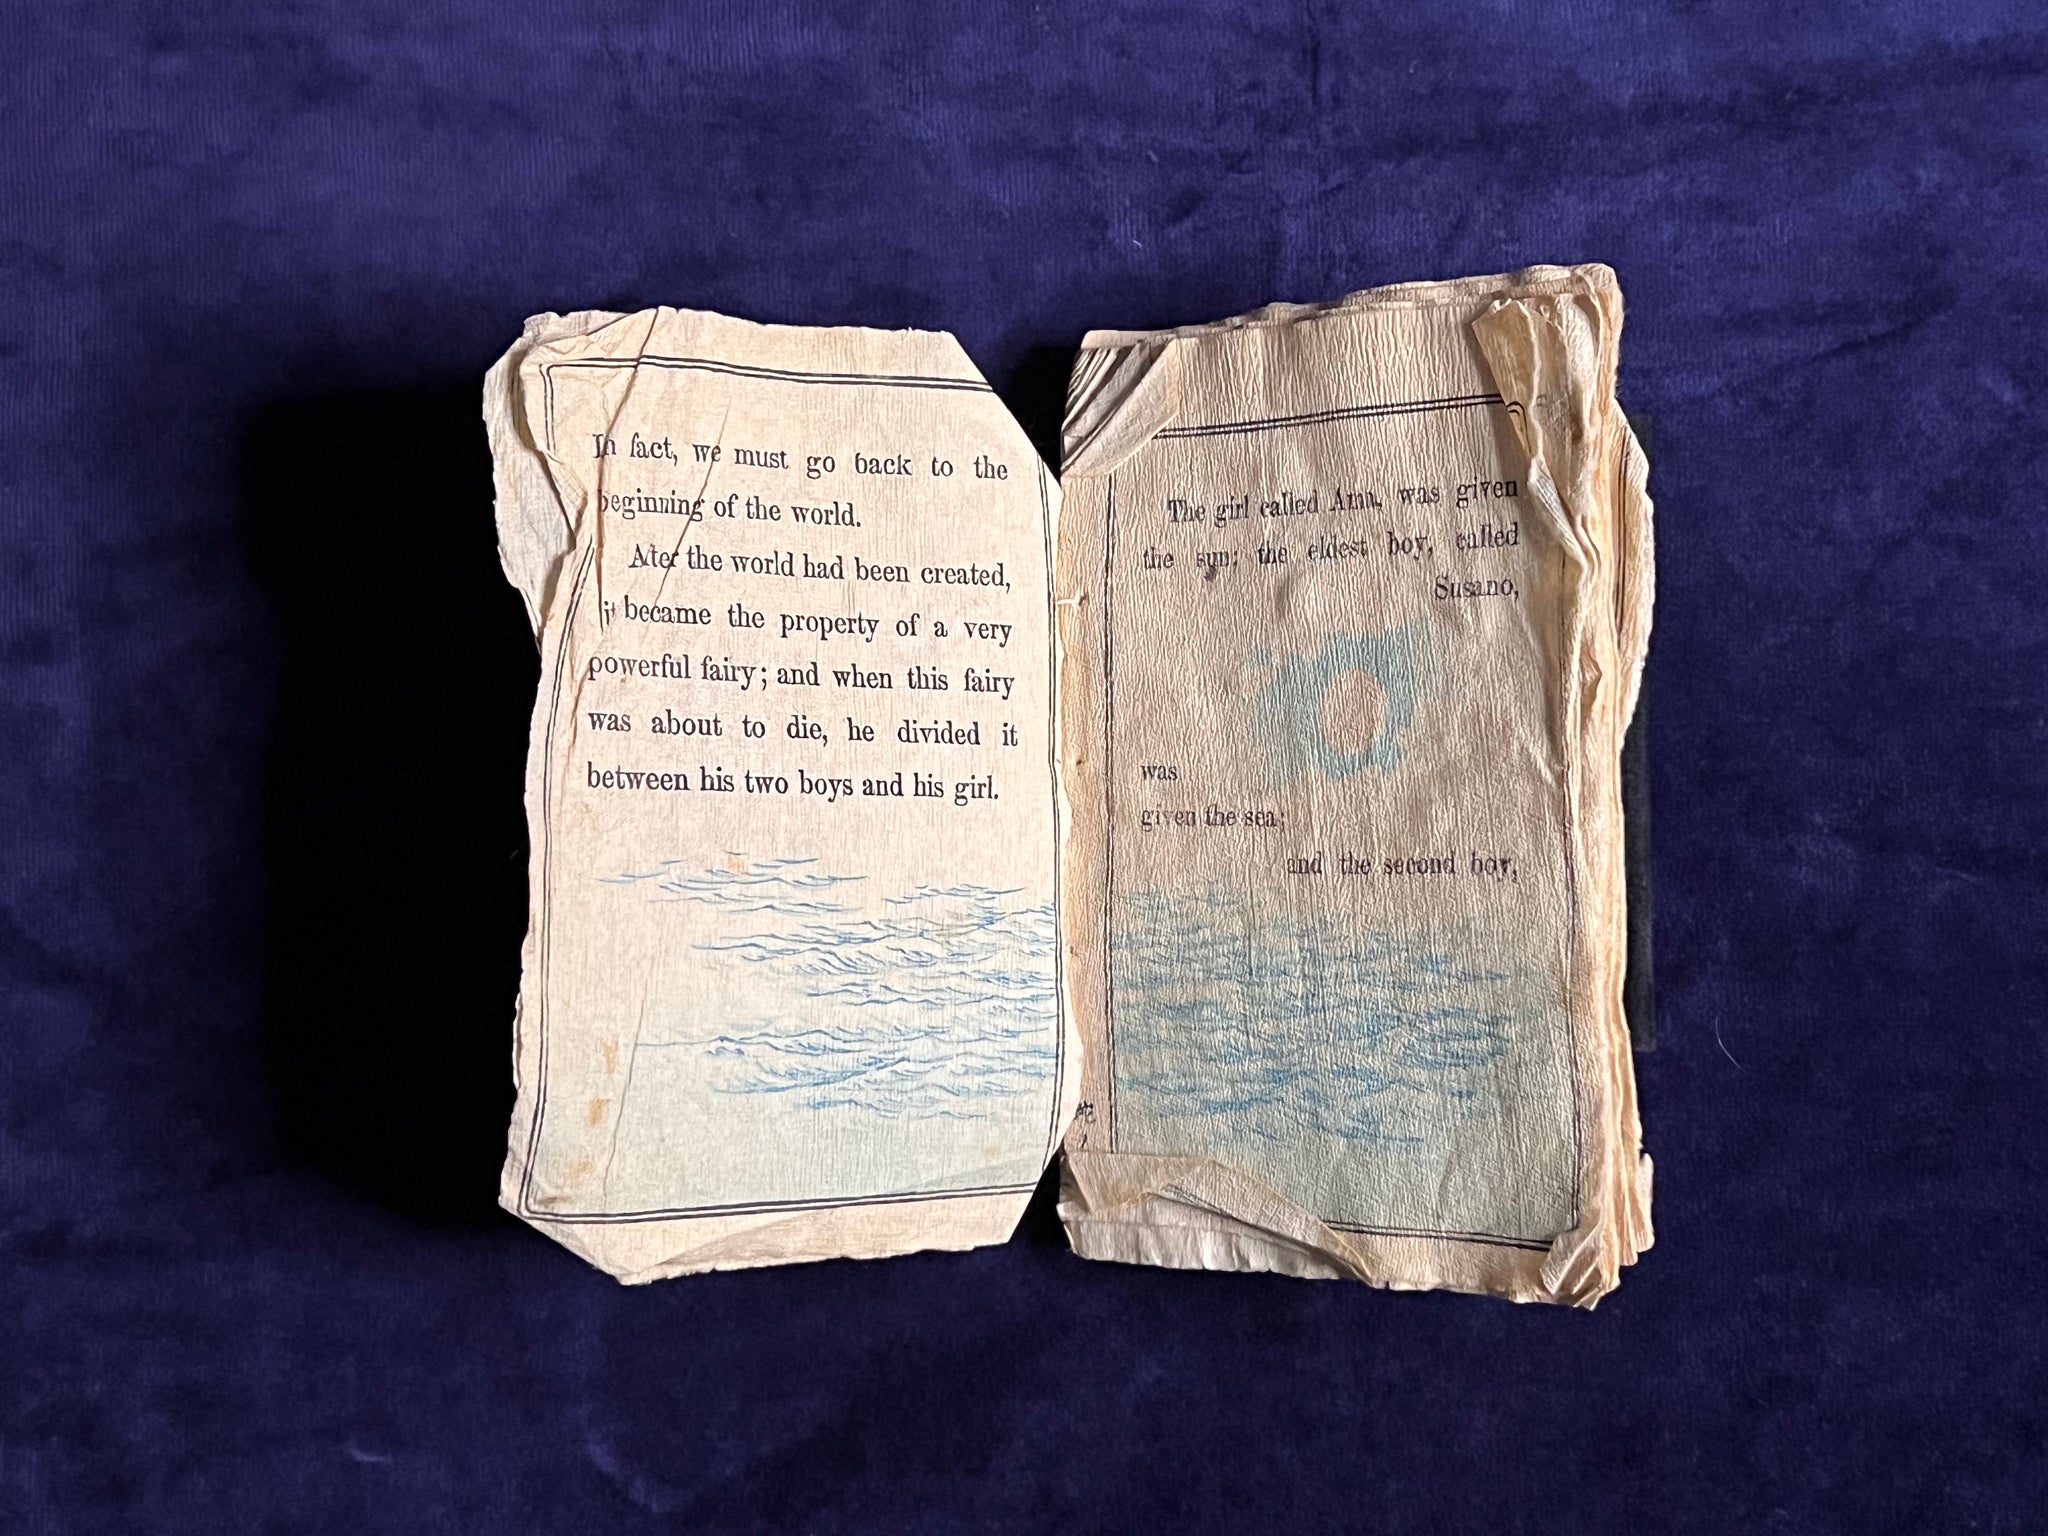 In fact, we must go back to the
beginning of the world.
After the world had been created,
it became the property of a very
powerful fairy; and when this fairy
was about to die, he divided it
between his two boys and his girl.
The girl called Ama, was given
the sun; the eldest boy, called
Susano,
was
given the sea;
and the second boy,